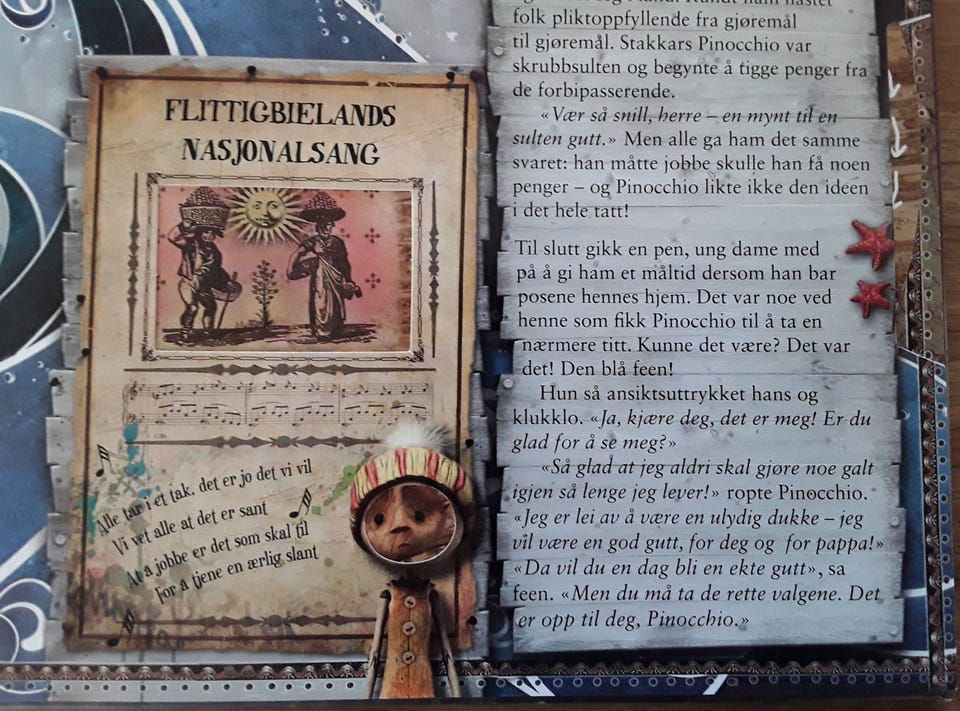 FLITTIGBIELANDS
NASJONALSANG
Alle tar i et tak, det er jo det vi vil
Vi vet alle at det er sant
At å jobbe er det som skal til
For å tjene en ærlig slant
folk pliktoppfyllende fra gjøremål
til gjøremål. Stakkars Pinocchio var
skrubbsulten og begynte å tigge penger fra
de forbipasserende.
«Vær så snill, herre – en mynt til en
sulten gutt.» Men alle ga ham det samme
svaret: han måtte jobbe skulle han få noen
penger – og Pinocchio likte ikke den ideen
i det hele tatt!
Til slutt gikk en pen, ung dame med
på å gi ham et måltid dersom han bar
posene hennes hjem. Det var noe ved
henne som fikk Pinocchio til å ta en
nærmere titt. Kunne det være? Det var
det! Den blå feen!
Hun så ansiktsuttrykket hans og
klukklo. «Ja, kjære deg, det er meg! Er du
glad for å se meg?»
«Så glad at jeg aldri skal gjøre noe galt
igjen så lenge jeg lever!» ropte Pinocchio.
«Jeg er lei av å være en ulydig dukke – jeg
vil være en god gutt, for deg og for pappa!»
«Da vil du en dag bli en ekte gutt», sa
feen. «Men du må ta de rette valgene. Det
er opp til deg, Pinocchio.»